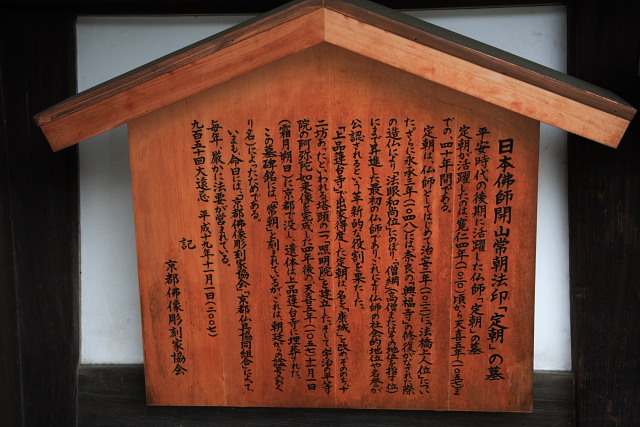 日本佛師開山常朝法印「定朝」の墓
平安時代の後期に活躍した仏師「定朝」の墓
定朝が活躍したのは、寛仁四年(一〇二〇)頃から天喜五年(一〇五七)ま
での四十年間である。
定朝は、仏師としてはじめて治安二年(一〇二二)に法橋上人位につい
たさらに永承三年(一〇四八)には、奈良の「興福寺」の修復がなされた際
の造仏により「法眼和尚位」にのぼり、「僧綱(高僧またはその地位を指す位)
にまで昇進した最初の仏師であり、これにより仏師の社会的地位や名誉が
公認されるという革新的な役割を果たした。
「上品蓮台寺」で出家得度した定朝は、名を「康城」と改めそののち、十
二坊あったといわれる塔頭の一つ「照明院」を建立したそして宇治の平等
院の阿弥陀如来像を完成した四年後の天喜五年(一〇五七)十一月一日
(霜月朔日)に京都で没し、遺体は上品蓮台寺に埋葬された。
この墓碑銘には、「常朝」と刻まれているが、これは、朝廷からの
り名)によったためである。
いまも命日には、「京都佛像彫刻家協会」「京都仏具協同組合」によって、
毎年、厳かに法要が営まれている。
九百五十回大遠忌 平成十九年十一月一日(二〇〇七)
記
京都佛像彫刻家協会